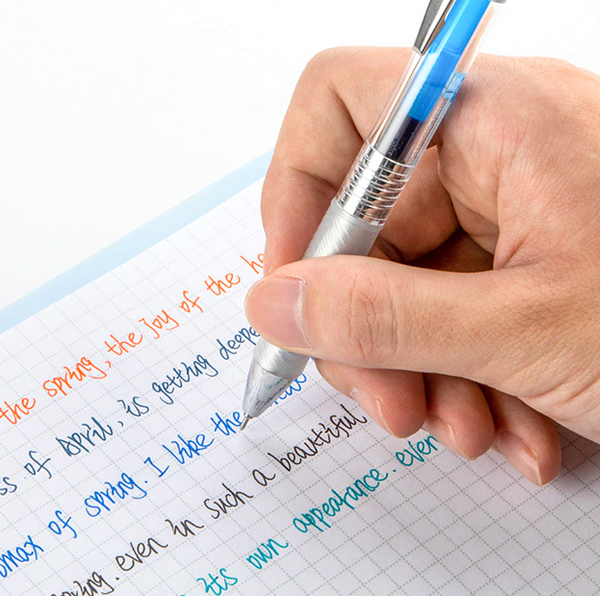 the spring, the joy of the
ss of April, is getting deepe
max of spring. I like the
ring. even in such a beautiful
its own appearance. even